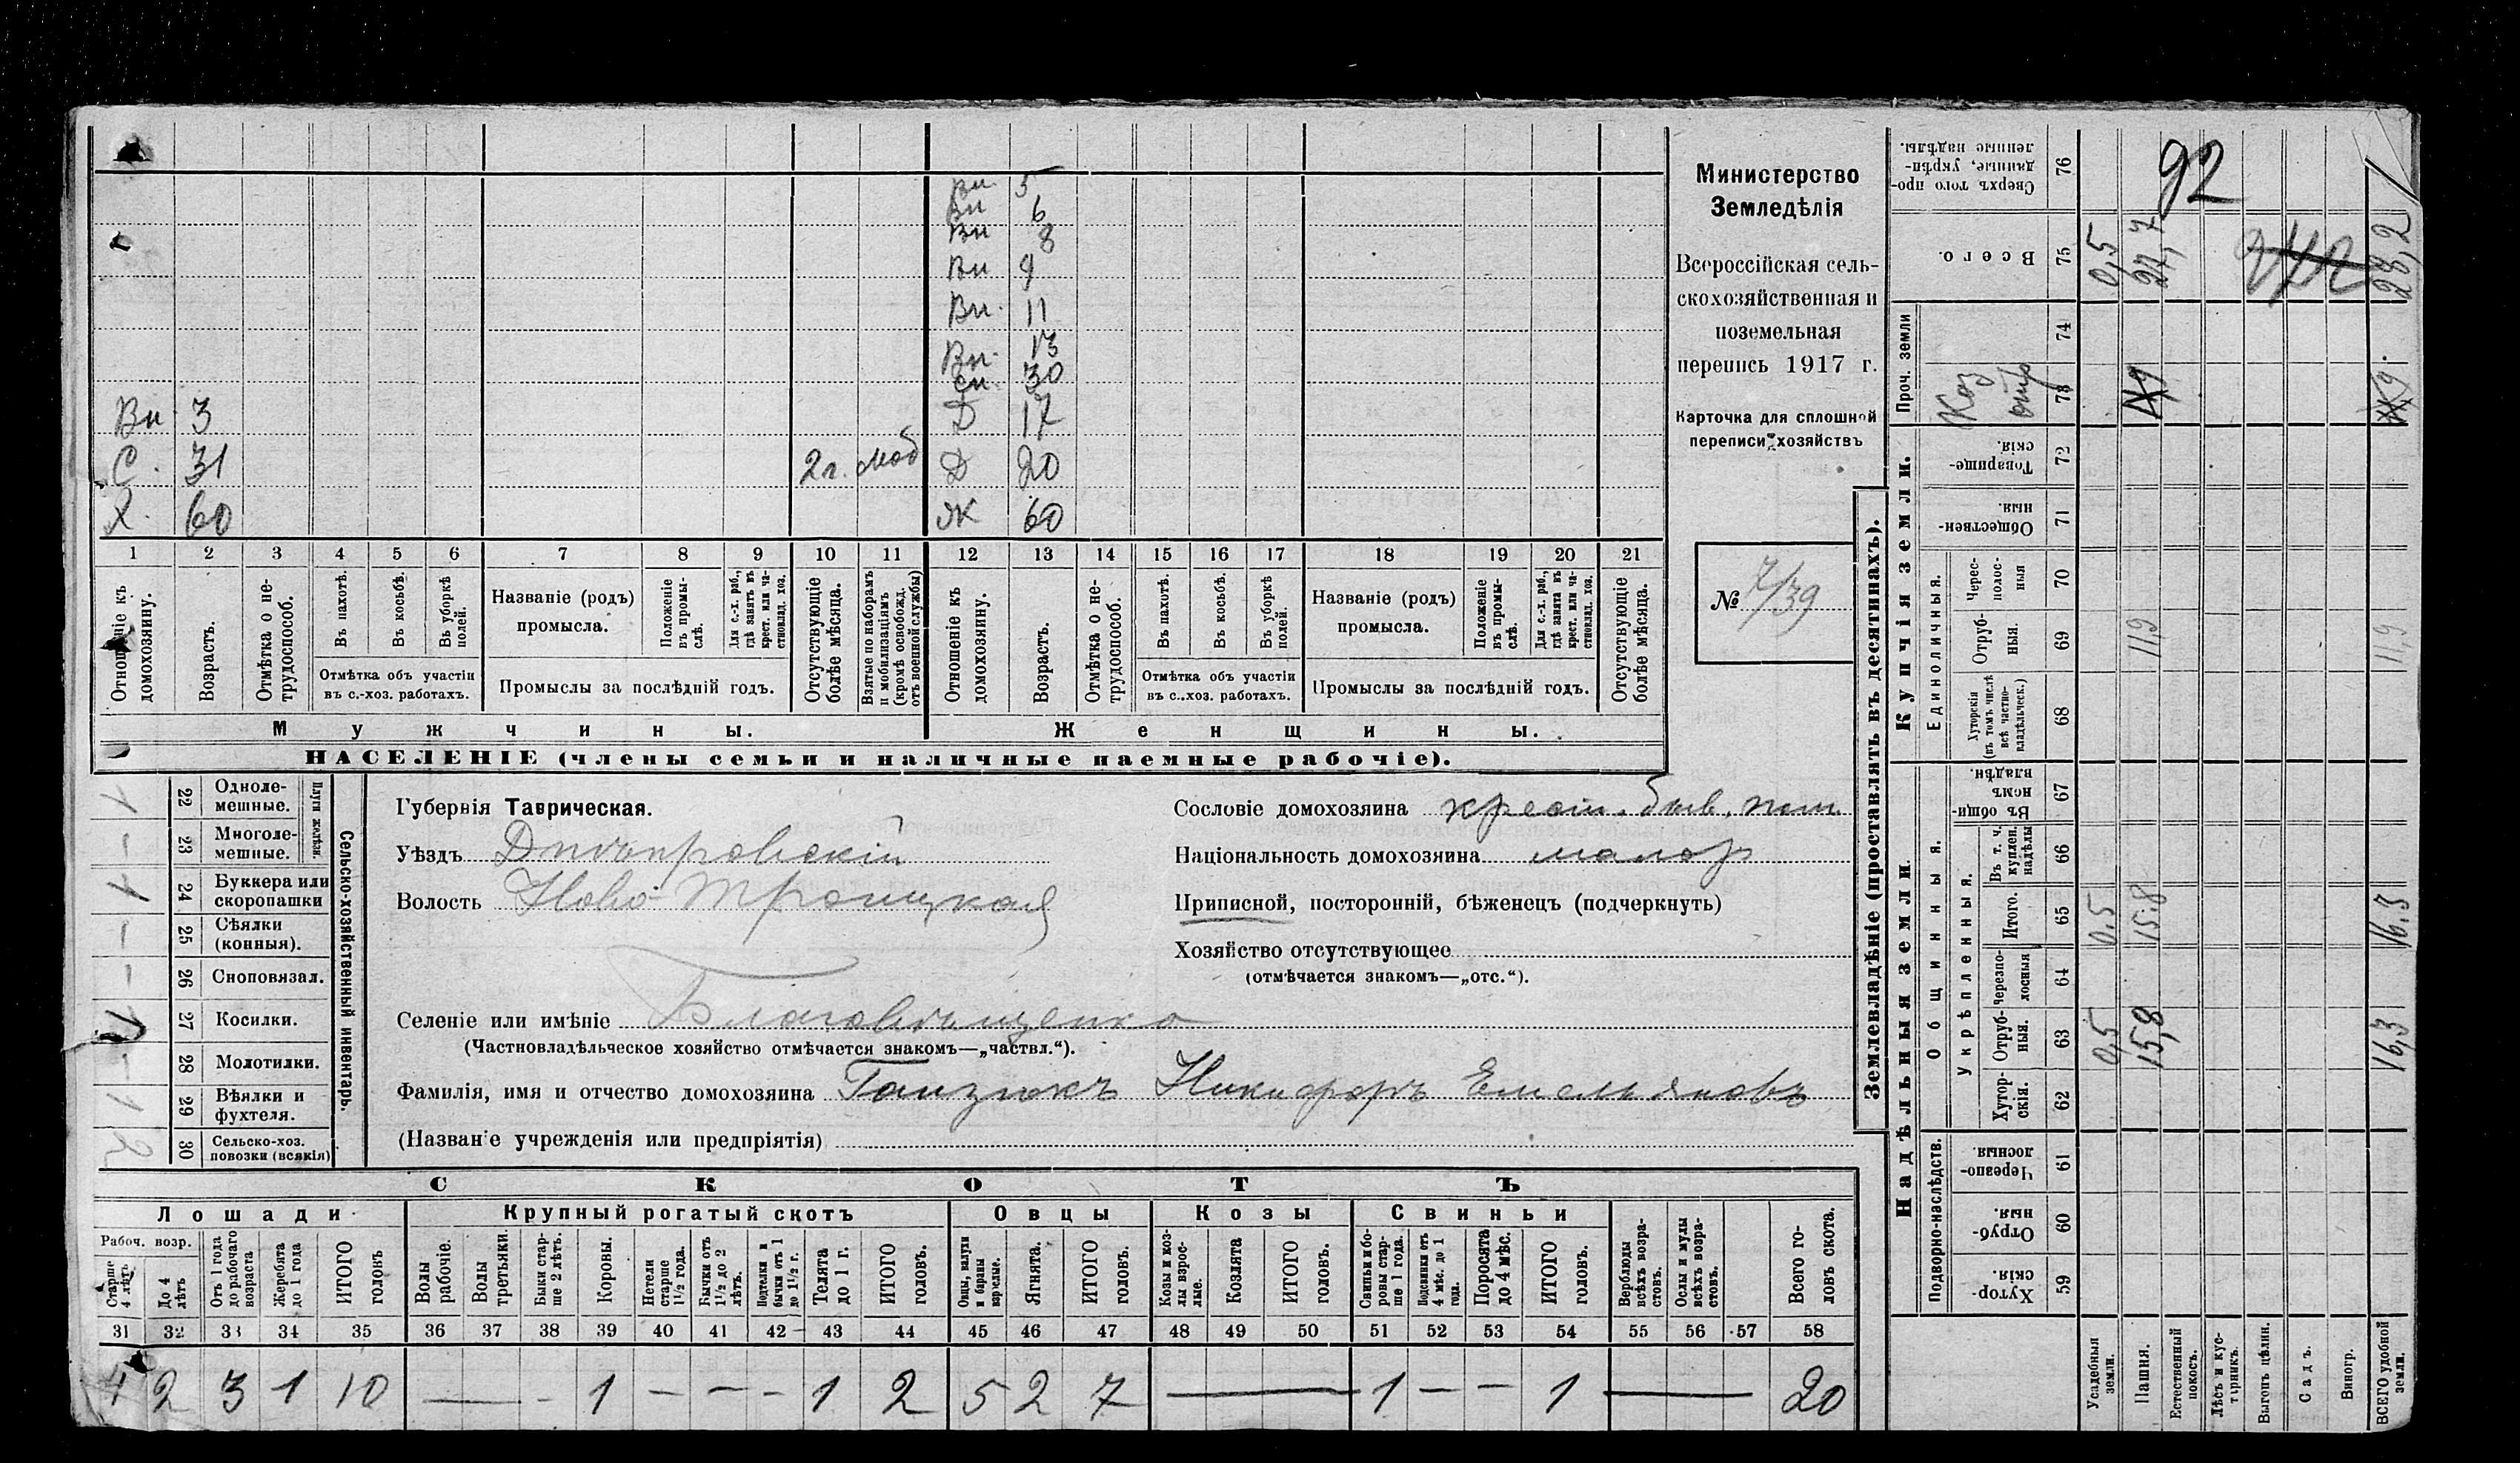 Вн. 5
Вн 6
Вн 8
Вн 9
Вн. 11
Вн. 13
сн. 30
Вн 3 Д 17
С. 31 2 г. моб Д 20
Х. 60 Ж 60
1 2 3 4 5 6 7 8 9 10 11 12 13 14 15 16 17 18 19 20 21
Отношеніе къ домохозяину.
Возрастъ.
Отмѣтка о не-трудоспособ.
Въ пахотѣ.
Въ косьбѣ.
Въ уборкѣ полей.
Отмѣтка объ участіи въ с.-хоз. работахъ.
Названіе (родъ) промысла.
Положеніе въ промы-слѣ.
Для с.-х. раб., гдѣ занятъ въ крест. или ча-стновлад. хоз.
Промыслы за послѣдній годъ.
Отсутствующіе болѣе мѣсяца.
Взятые по наборамъ и мобилизаціямъ (кромѣ освобожд. отъ военной службы)
Отношеніе къ домохозяину.
Возрастъ.
Отмѣтка о не-трудоспособ.
Въ пахотѣ.
Въ косьбѣ.
Въ уборкѣ полей.
Отмѣтка объ участіи въ с.-хоз. работахъ.
Названіе (родъ) промысла.
Положеніе въ промы-слѣ.
Для с.-х. раб., гдѣ занята въ крест. или ча-стновлад. хоз.
Промыслы за послѣдній годъ.
Отсутствующіе болѣе мѣсяца.
Мужчины. Женщины.
НАСЕЛЕНІЕ (члены семьи и наличные наемные рабочіе).
Министерство
Земледѣлія
Всероссійская сель-
скохозяйственная и
поземельная
перепись 1917 г.
Карточка для сплошной
переписи хозяйствъ
№ 7/39
Сельско-хозяйственный инвентарь.
Плуги желѣзн.
1 22 Одноле-мешные.
– 23 Многоле-мешные.
1 24 Буккера или скоропашки
– 25 Сѣялки (конныя).
– 26 Сноповязал.
1 27 Косилки.
– 28 Молотилки.
1 29 Вѣялки и фухтеля.
2 30 Сельско-хоз. повозки (всякія)
Губернія Таврическая.
Уѣздъ Днѣпровскій
Волость Ново-Троицкая
Селеніе или имѣніе Благовѣщенко
(Частновладѣльческое хозяйство отмѣчается знакомъ—„частвл.“).
Фамилія, имя и отчество домохозяина Ганзюкъ Никифоръ Емельяновъ
(Названіе учрежденія или предпріятія)
Сословіе домохозяина крест. быв. пом.
Національность домохозяина малор
Приписной, посторонній, бѣженецъ (подчеркнуть)
Хозяйство отсутствующее
(отмѣчается знакомъ—„отс.“).
СКОТЪ
Лошади Крупный рогатый скотъ Овцы Козы Свиньи
Рабоч. возр.
Старше 4 лѣтъ
До 4 лѣтъ
Отъ 1 года до рабочаго возраста
Жеребята до 1 года
ИТОГО головъ
Волы рабочіе.
Волы третьяки.
Быки стар-ше 2 лѣтъ.
Коровы.
Нетели старше 1½ года.
Бычки отъ 1½ до 2 лѣтъ.
Подтелки и бычки отъ 1 до 1½ г.
Телята до 1 г.
ИТОГО головъ.
Овцы, валухи и бараны взрослые.
Ягнята.
ИТОГО головъ.
Козы и коз-лы взрос-лые.
Козлята
ИТОГО головъ.
Свиньи и бо-ровы стар-ше 1 года.
Подсвинки отъ 4 мѣс. до 1 года.
Поросята до 4 мѣс.
ИТОГО головъ.
Верблюды всѣхъ возра-стовъ.
Ослы и мулы всѣхъ возра-стовъ.
Всего го-ловъ скота.
31 32 33 34 35 36 37 38 39 40 41 42 43 44 45 46 47 48 49 50 51 52 53 54 55 56 57 58
4 2 3 1 10 — - 1 – – - 1 2 5 2 7 — 1 – – 1 — 20
Землевладѣніе (проставлять въ десятинахъ).
Надѣльныя земли. Купчія земли. Проч. земли
Подворно-наслѣдств.
Общинныя.
Укрѣпленныя.
Единоличныя.
Хутор-скія. 59
Отруб-ныя. 60
Черезпо-лосныя. 61
Хутор-скія. 62
Отруб-ныя. 63 0,5 15,8 16,3
Черезпо-лосныя 64
Итого. 65 0.5 15.8 16.3
Въ т. ч. куплен. надѣлы 66
Въ общи-номъ владѣн. 67
Хуторскія (въ томъ числѣ всѣ частно-владѣльческ.) 68
Отруб-ныя. 69 11,9 11,9
Черес-полос-ныя 70
Обществен-ныя. 71
Товарище-скія. 72
73
74
Всего. 75 0,5 27,7 28,2
Сверхъ того про-данные, укрѣп-ленные надѣлы. 76
92
Усадебныя земли.
Пашня.
Естественный покосъ.
Лѣсъ и кус-тарникъ.
Выгонъ цѣлин.
Садъ.
Виногр.
ВСЕГО удобной земли.